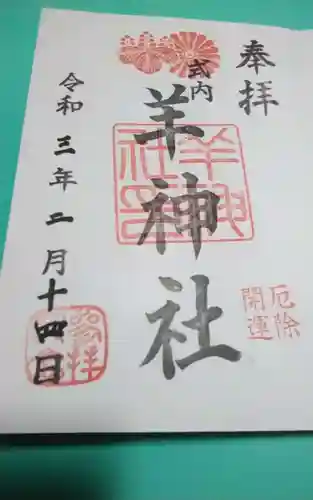 奉拝
式内
羊神社
厄除
開運
令和三年二月十四日